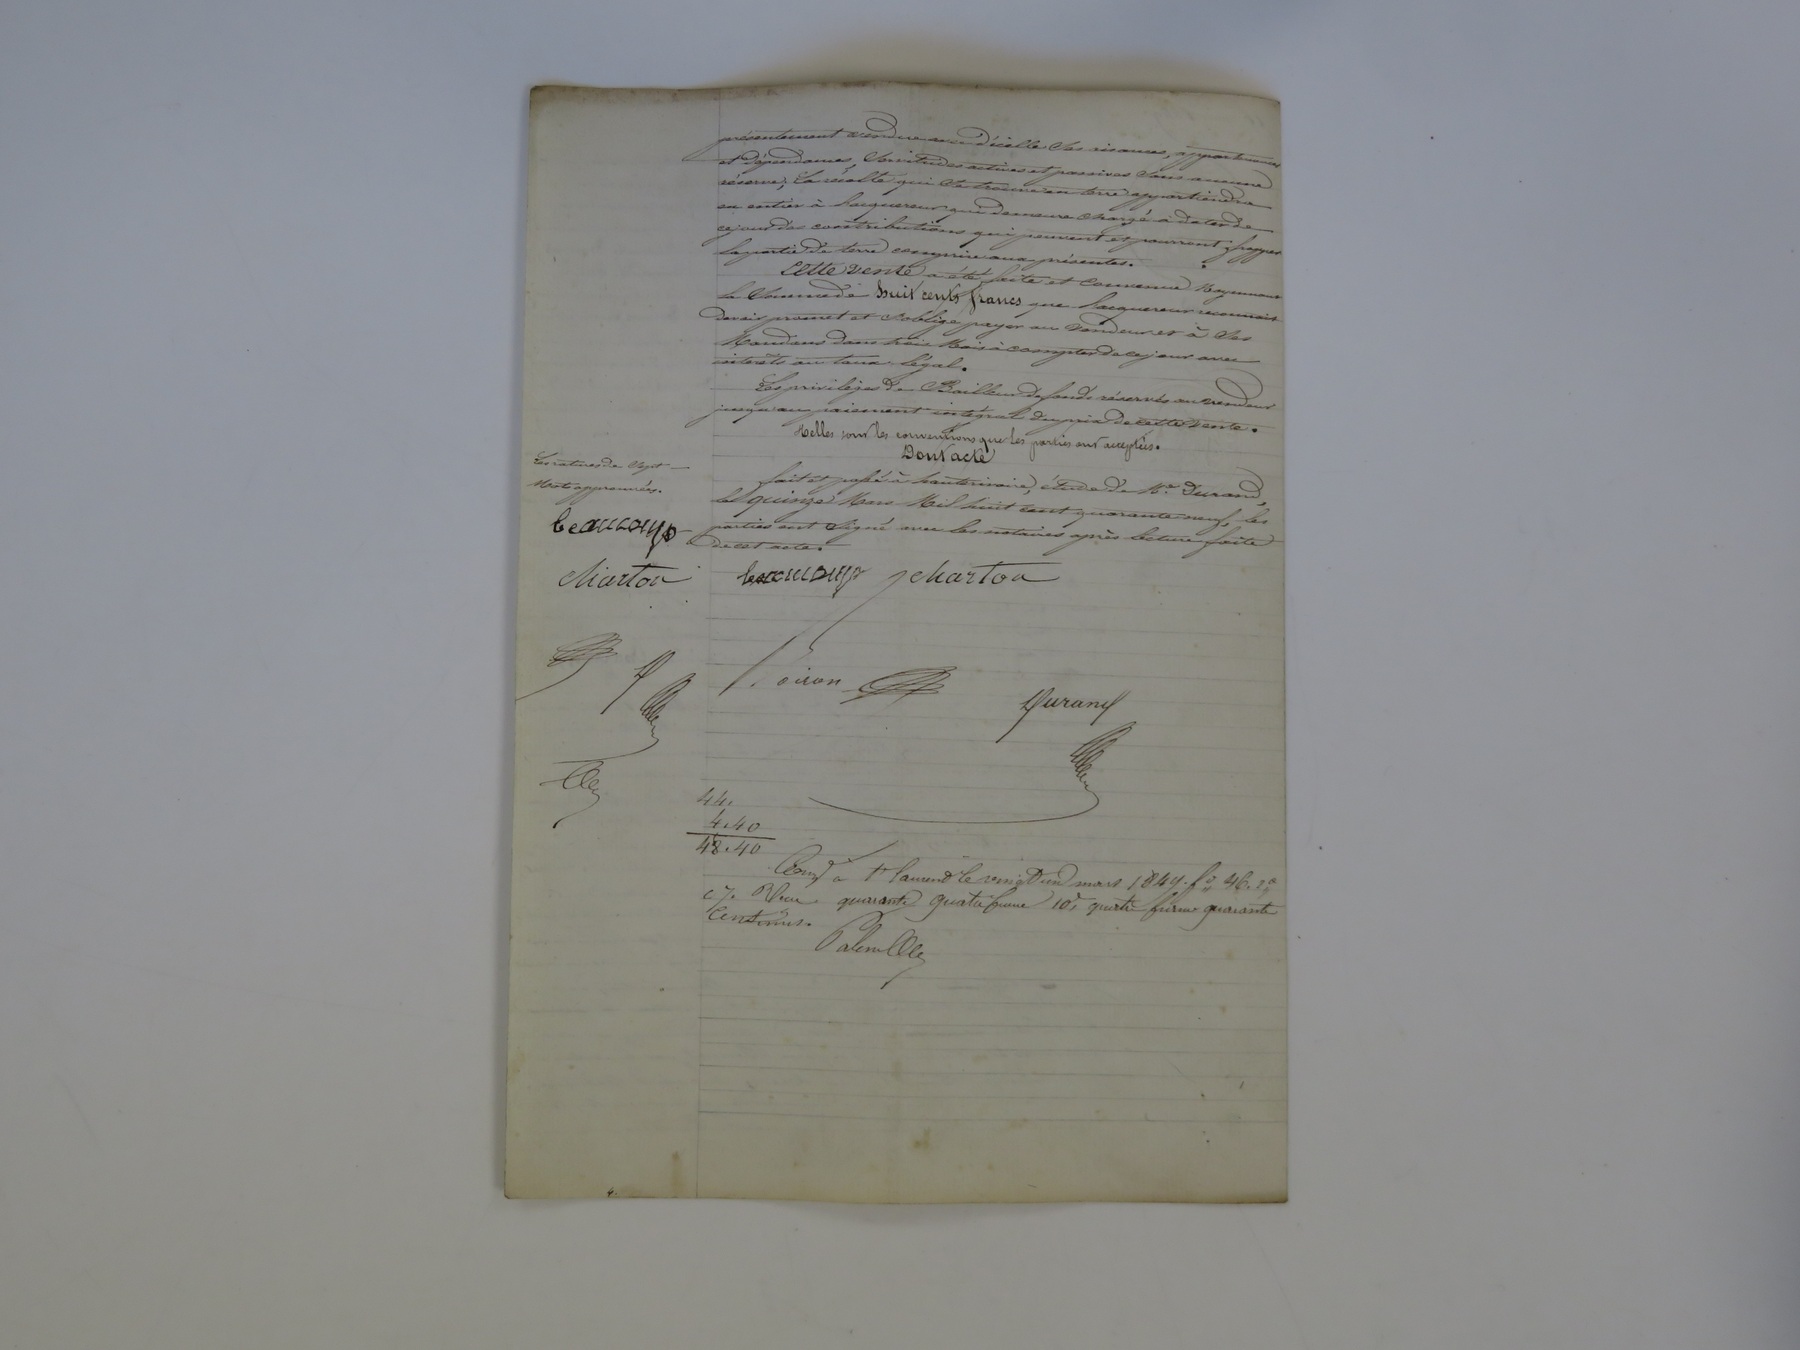 présentement vendue avec d'icelle ses aisances, appartenances
et dépendances, Servitudes actives et passives sans aucune
réserve; La récolte qui se trouve en terre appartiendra
en entier à l'acquéreur qui demeure chargé à dater de
ce jour des contributions qui peuvent et pourront frapper
la partie de terre comprise aux présentes.
Cette vente a été faite et convenue Moyennant
la Somme de huit cents francs que l'acquéreur reconnait
devoir promet et s'oblige payer au Vendeur et à Ses
Mandans dans trois Mois à compter de ce jour avec
intérêts au taux légal.
Les privilèges de Bailleur de fonds réservés au vendeur
jusqu'au paiement intégral du prix de cette Vente.
telles sont les conventions que les parties ont acceptées.
Dont acte
fait et passé à hauterivoire, étude de Me. Durand,
le quinze Mars Mil huit cent quarante neuf, les
parties ont Signé avec les notaires après lecture faite
de cet acte.
Les ratures de Sept
Mots approuvées.
beaucoup
charton
beaucoup charton
oiron
Durand
44.
4.40
48.40
à St laurent le vingt un mars 1849. fo. 46. Ro
c 7. Reçu quarante quatre francs 10e quatre francs quarante
Centimes.